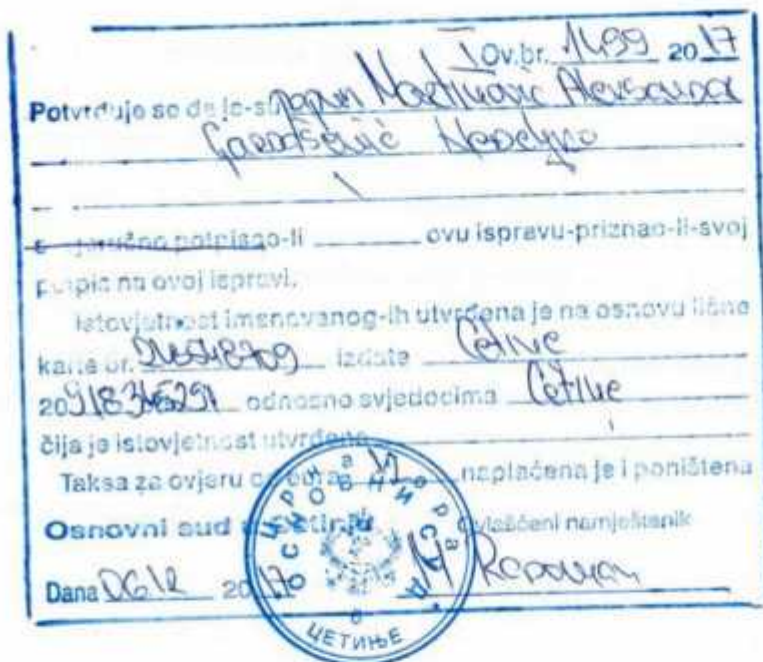 I Ov.br. 1499 2017
Potvrđuje se da je-su Martinović Aleksandar
Garašević Nedeljko
svojeručno potpisao-li ovu ispravu-priznao-li-svoj
potpis na ovoj ispravi.
Istovjetnost imenovanog-ih utvrđena je na osnovu lične
karte br. izdate Cetinje
20 918346291 odnosno svjedocima Cetinje
čija je istovjetnost utvrđena
Taksa za ovjeru od eura naplaćena je i poništena
Osnovni sud u Cetinju Ovlašćeni namještenik
Dana 06 12 2017 M
Црна Гора
ОСНОВНИ СУД
ЦЕТИЊЕ